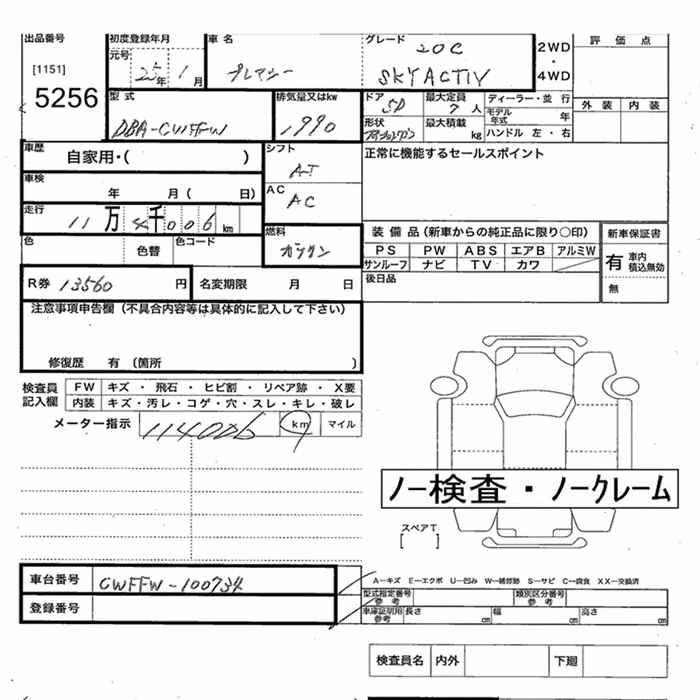 出品番号 初度登録年月 車名 グレード 2WD・4WD 評価点
元号 25年 1月 プレマシー 20C SKYACTIV
[1151]
5256
外装 内装
型式 排気量又はkw ドア 5D 最大定員 7人 ディーラー・並行
DBA-CWFFW 1,990 形状 最大積載 kg モデル年式 年
ハンドル 左・右
車歴 自家用・( ) シフト AT 正常に機能するセールスポイント
車検 年 月( 日) AC AC
走行 11万4千006km 燃料 ガソリン
装備品(新車からの純正品に限り○印) 新車保証書
色 色替 色コード
PS PW ABS エアB アルミW 有 車内積込無効
サンルーフ ナビ TV カワ
R券 13560円 名変期限 月 日 後日品 無
注意事項申告欄(不具合内容等は具体的に記入して下さい)
修復歴 有(箇所 )
検査員記入欄 FW キズ・飛石・ヒビ割・リペア跡・X要
内装 キズ・汚レ・コゲ・穴・スレ・キレ・破レ
メーター指示 114006 km マイル
ノー検査・ノークレーム
スペアT
[ ]
車台番号 CWFFW-100734
登録番号
A―キズ E―エクボ U―凹み W―補修跡 S―サビ C―腐食 XX―交換済
型式指定番号参考 類別区分番号参考
車庫証明用参考 長さ cm 幅 cm 高さ cm
検査員名 内外 下廻